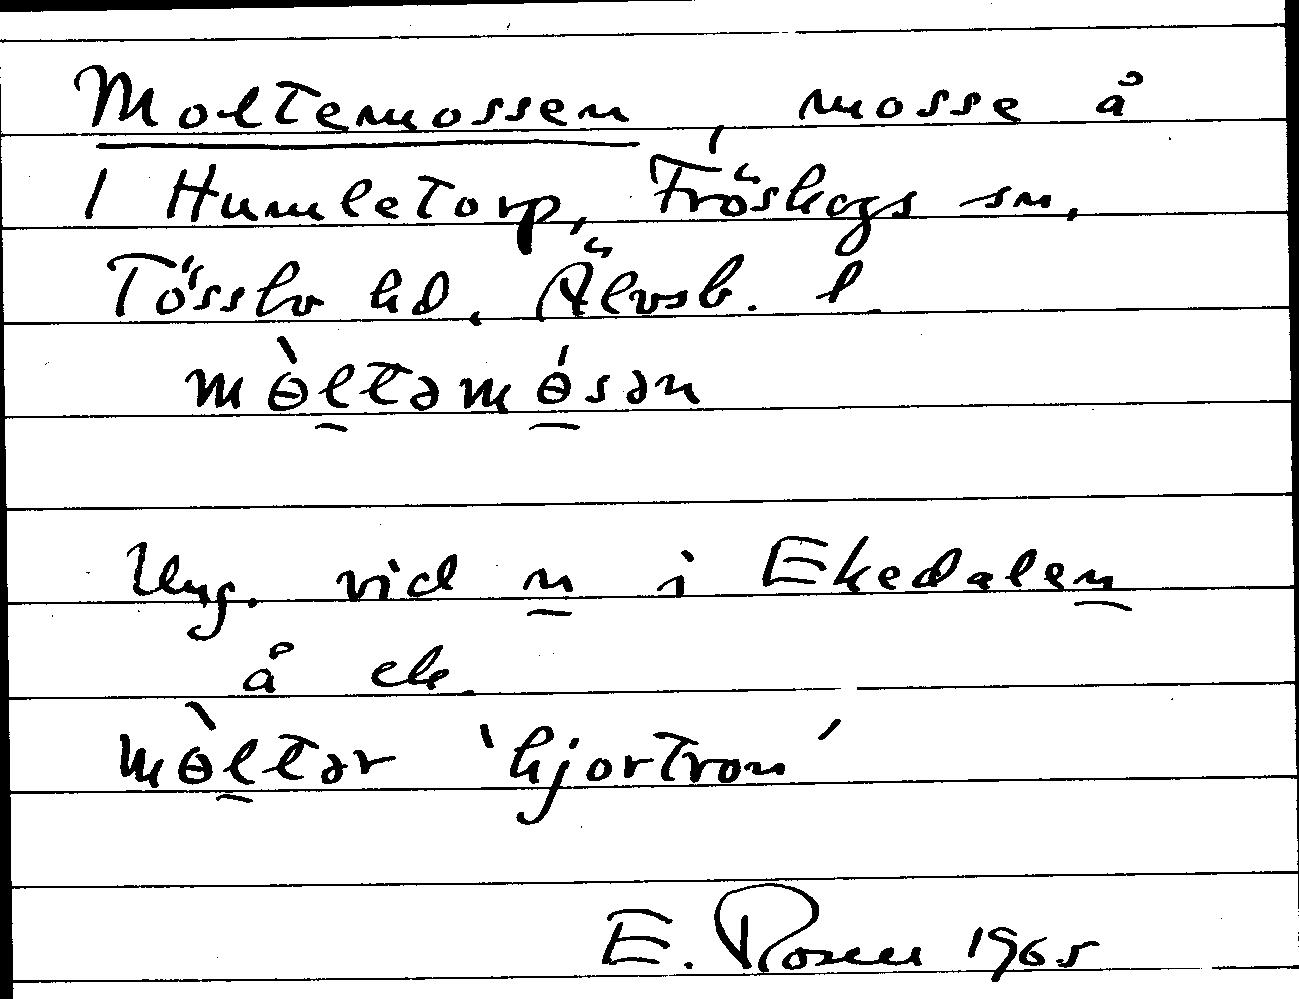 Moltemossen, mosse å
1 Humletorp, Fröskogs sn,
Tössbo hd, Älvsb. l
mɵ̀ltəmɵ́sən
Ung. vid n i Ekedalen
å ek
mɵ̀ltər 'hjortron'
E. Rosen 1965